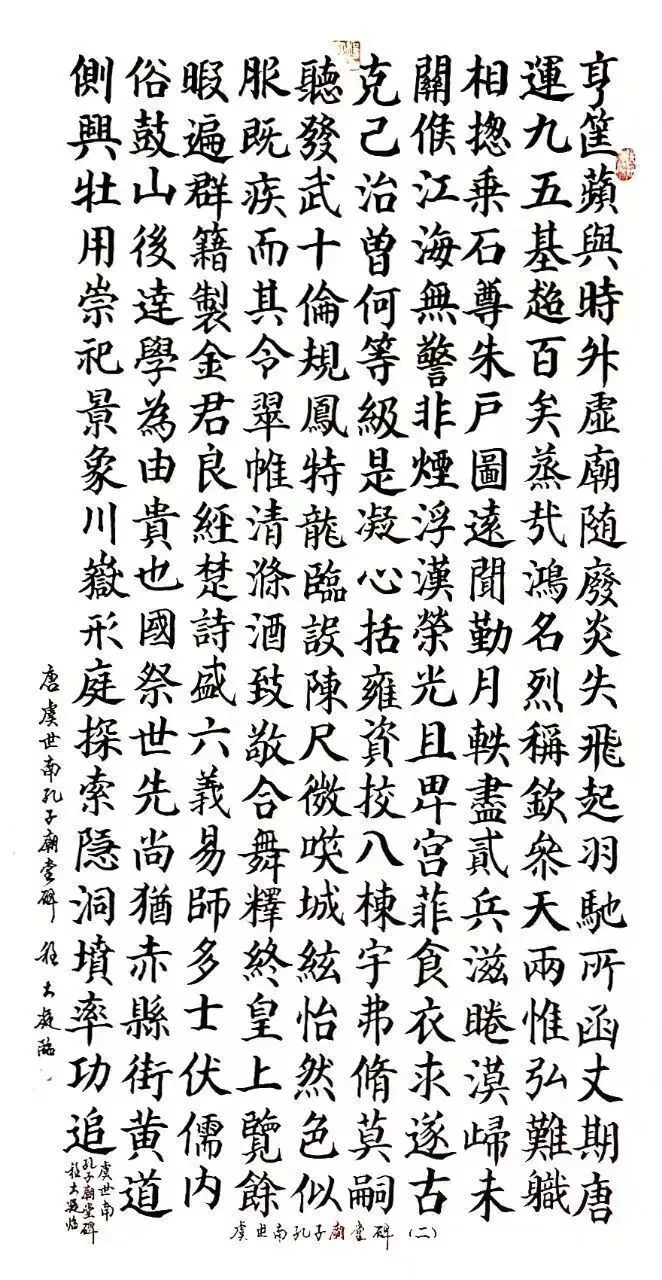 亨筐蘋與時外虛廟随廢炎失飛起羽馳所函丈期唐
運九五基趍百矣蒸㢤鴻名烈稱欽叅天兩惟弘難職
相揔乗石尊朱戶圖遠聞勤月軼盡貳兵滋睠漠歸未
關候江海無警非煙浮漢榮光且卑宮菲食衣求遂古
克己治曽何等級是凝心括雍資挍八棟宇弗脩莫嗣
聽發武十倫規鳳特龍臨設陳尺微唉城絃怡然色似
服既疾而其令翠帷清滌酒致敬合舞釋終皇上覽餘
暇遍群籍製金君良經楚詩盛六義易師多士伏儒内
俗鼓山後逹學為由貴也國祭世先尚猶赤縣街黄道
側興牡用崇祀景象川嶽形庭探索隠洞墳率功追
唐虞世南孔子廟堂碑 程大凝臨
虞世南
孔子廟堂碑
程大凝临
虞世南孔子廟堂碑（二）